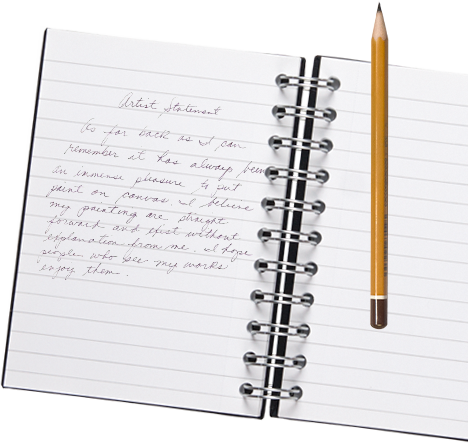 Artist Statement
As far back as I can
remember it has always been
an immense pleasure to put
paint on canvas. I believe
my painting are straight
forward and exist without
explanation from me. I hope
people who see my works
enjoy them.